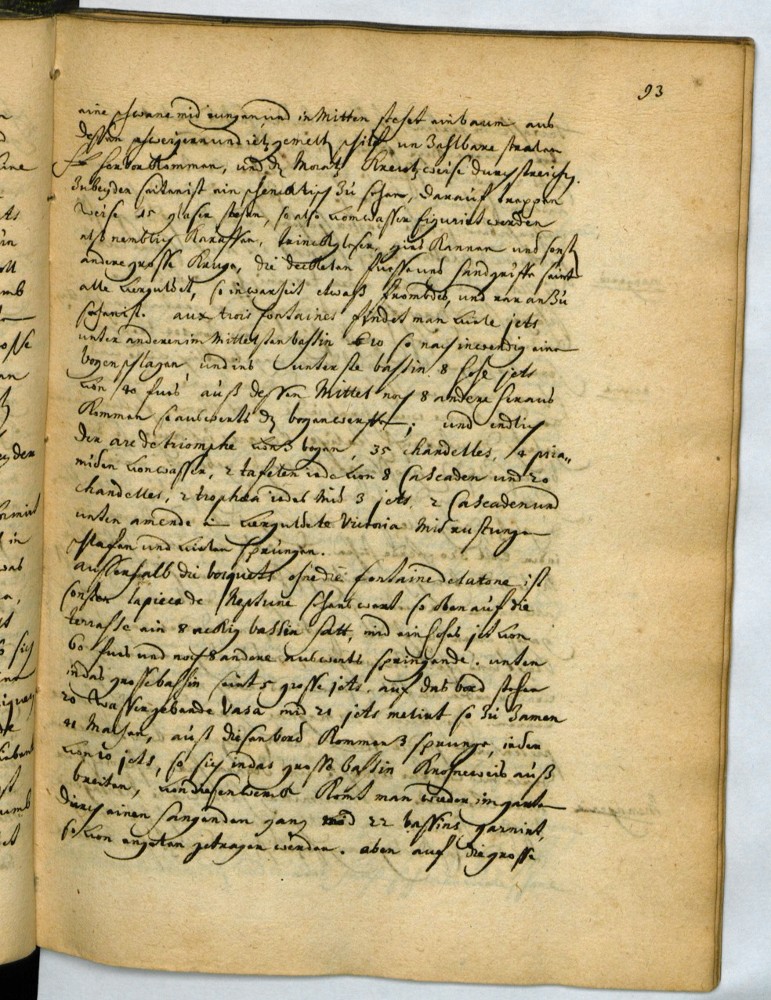 93
eine schwane mid jungen und in Mitten stehet ein baum aus
dessen zweigen und itzgemelt schilf un Zahlbare stralen
hervor kommen, und dz Creutzweise durchstreichen.
Zu beyden seiten ist ein schencktisch zu sehen, darauf troppen
weise 15 gleser stehen, so also vom wasser figurirt werden
als nemblich Karaffen, trinckgleser, Kannen und sonst
andere grosse Kruge, die deckelen fuesse und handgriffe seint
alle verguldet, so in warheit etwass und rar an zu
sehen ist. aux trois fontaines findet man viele jets
unter anderen im Mittelsten bassin 20 so nach inwendig eine
bogen schlagen, und ins unterste bassin 8 hohe jets
von 40 fues aus dessen Mittel noch 8 andere heraus
kommen seulwerts dz bogenwerfen; und endlich
den arc de triomphe von 3 bogen, 35 chandelles, 4 pira„
miden von wasser, 2 tafelen jede von 8 Cascaden und 20
chandelles, 2 trophea jedes mid 3 jets, 2 Cascaden und
unten am ende ein verguldete Victoria mid rustungen
und vielen sprüngen.
Ausserhalb die bosquets ohne die fontaine de Latone ist
la piece de Neptune so oben auf die
terrasse ein 8 eckig bassin hatt, mid ein hohes jet von
60 fues und noch 8 andere springende. unten
in das grosse bassin seint 5 grosse jets, auf das bord stehen
20 wasser gebende Vasa mid 21 jets melirt so zu samen
41 Machen, aus diesen bord kommen 3 sprunge, jeder
von 10 jets, so sich in das grosse bassin aus
breiten, von kömt man wieder im garten
durch einen hangenden gang mid 22 bassins garnirt,
so von getragen werden. eben auf die grosse